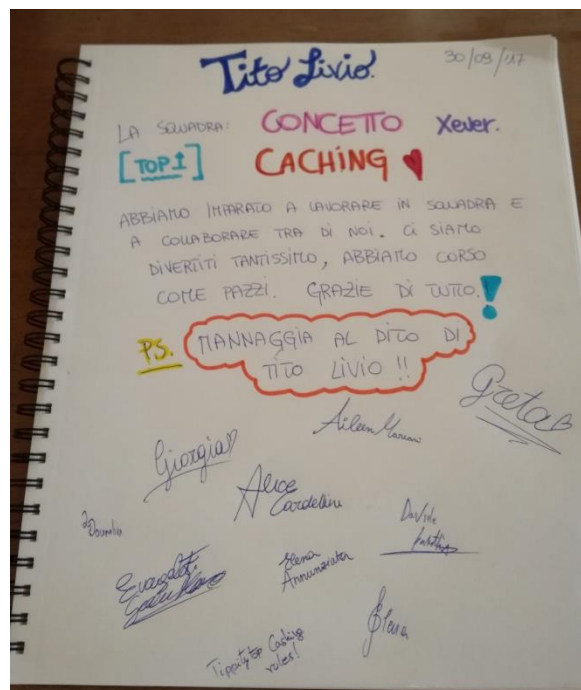 Tito Livio.
30/09/17
LA SQUADRA: CONCETTO Xever.
[TOP 1] CACHING
ABBIAMO IMPARATO A LAVORARE IN SQUADRA E
A COLLABORARE TRA DI NOI. CI SIAMO
DIVERTITI TANTISSIMO, ABBIAMO CORSO
COME PAZZI. GRAZIE DI TUTTO!
P.S. MANNAGGIA AL DITO DI
TITO LIVIO !!
Greta
Aileen Mariani
Giorgia
Alice
Cardellini
Davide
Elena
Annunziata
Tippity top Caching
rules!